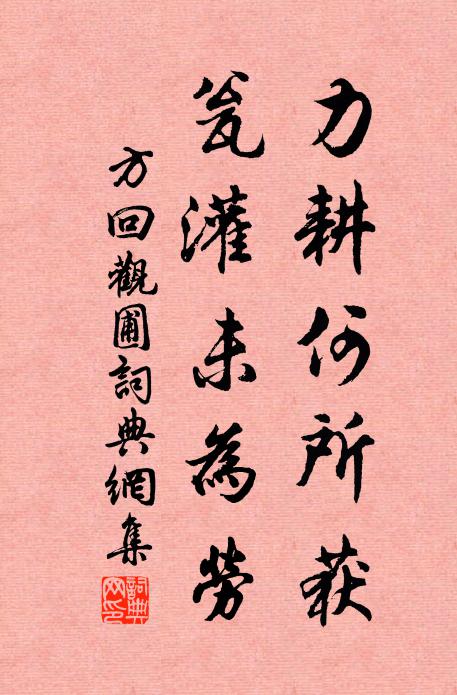 力耕何所获
瓮灌未為勞
方回觀圃詞典網集
詞典網印